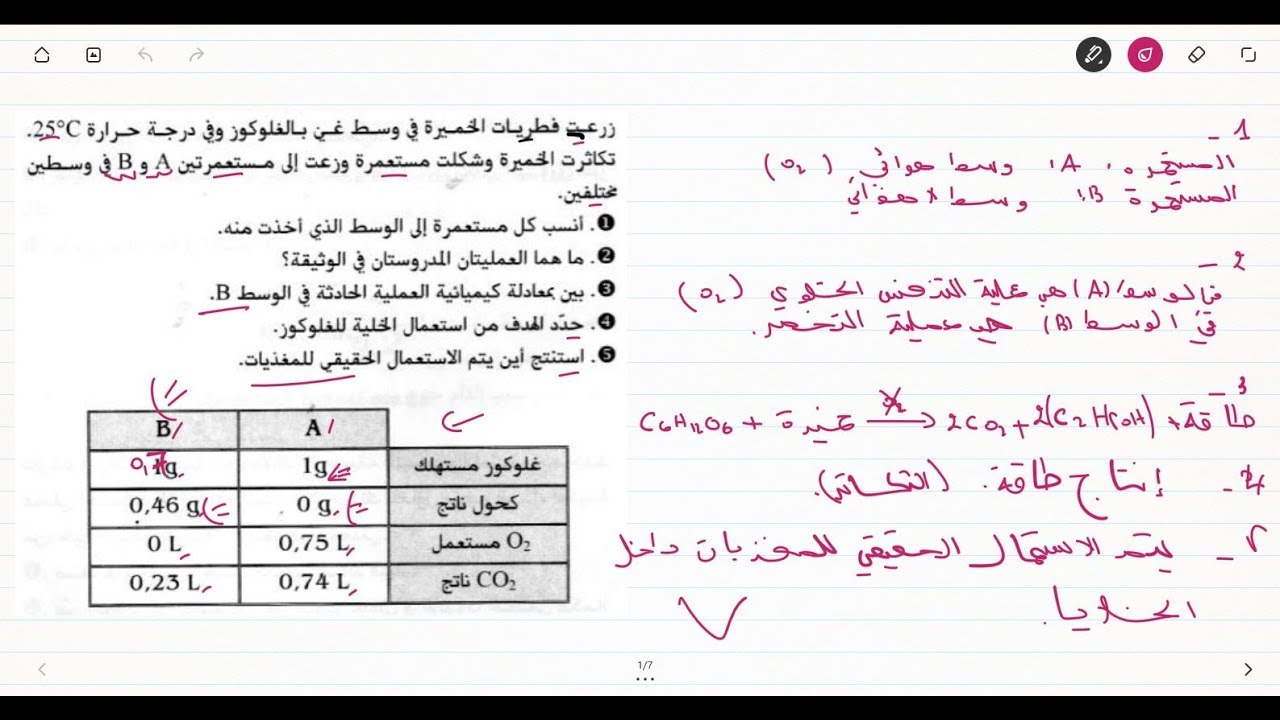 زرعت فطريات الخميرة في وسط غني بالغلوكوز وفي درجة حرارة 25°C.
تكاثرت الخميرة وشكلت مستعمرة وزعت إلى مستعمرتين A و B في وسطين
مختلفين.
❶. أنسب كل مستعمرة إلى الوسط الذي أخذت منه.
❷. ما هما العمليتان المدروستان في الوثيقة؟
❸. بين بمعادلة كيميائية العملية الحادثة في الوسط B.
❹. حدّد الهدف من استعمال الخلية للغلوكوز.
❺. استنتج أين يتم الاستعمال الحقيقي للمغذيات.
A B
غلوكوز مستهلك 1g g
كحول ناتج 0 g 0,46 g
O2 مستعمل 0,75 L 0 L
CO2 ناتج 0,74 L 0,23 L
1 -
المستعمرة A: وسط هوائي (O2)
المستعمرة B: وسط لا هوائي
2 -
في الوسط (A) هي عملية التنفس الخلوي (O2)
في الوسط (B) هي عملية التخمر.
3 -
C6H12O6 + خميرة → 2CO2 + 2(C2H(OH) + طاقة
4 - إنتاج طاقة. (التكاثر).
- يتم الاستعمال الحقيقي للمغذيات داخل
الخلايا.
1/7